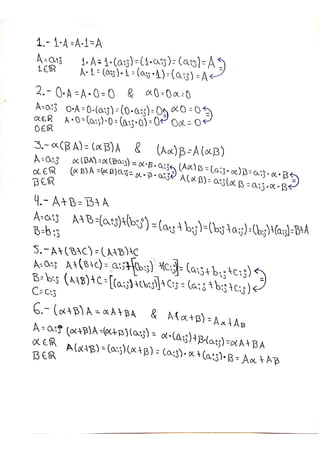 1.- 1·A=A·1=A
A=aij 1·A=1·(aij)=(1·aij)=(aij)=A
1∈R A·1=(aij)·1=(aij·1)=(aij)=A
2.- 0·A=A·0=0 & α0=0α=0
A=aij 0·A=0·(aij)=(0·aij)=0 α0=0
α∈R A·0=(aij)·0=(aij·0)=0 0α=0
0∈R
3.-α(BA)=(αB)A & (Aα)B=A(αB)
A=aij α(BA)=α(Baij)=α·B·aij (Aα)B=(aij·α)B=aij·α·B
α∈R (αB)A=(αB)aij=α·B·aij A(αB)=aij(αB=aij·α·B
B∈R
4.-A+B=B+A
A=aij A+B=(aij)+(bij)=(aij+bij)=(bij+aij)=(bij)+(aij)=B+A
B=bij
5.-A+(B+C)=(A+B)+C
A=aij A+(B+C)=aij+[(bij)+(cij]=(aij+bij+cij)
B=bij (A+B)+C=[(aij)+(bij)]+cij=(aij+bij+cij)
C=cij
6.-(α+B)A=αA+BA & A(α+B)=Aα+AB
A=aij (α+B)A=(α+B)(aij)=α·(aij)+B(aij)=αA+BA
α∈R A(α+B)=(aij)(α+B)=(aij)·α+(aij)·B=Aα+AB
B∈R